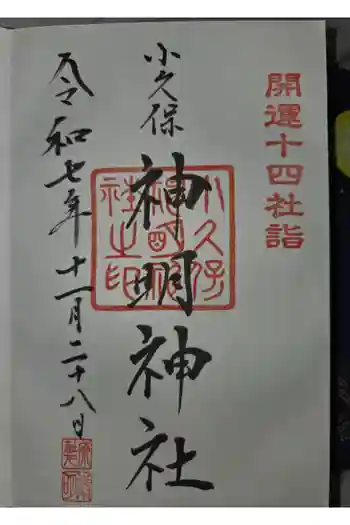 開運十四社詣
小久保
神明神社
小久保
神明神
社之印
令和七年十一月二十八日